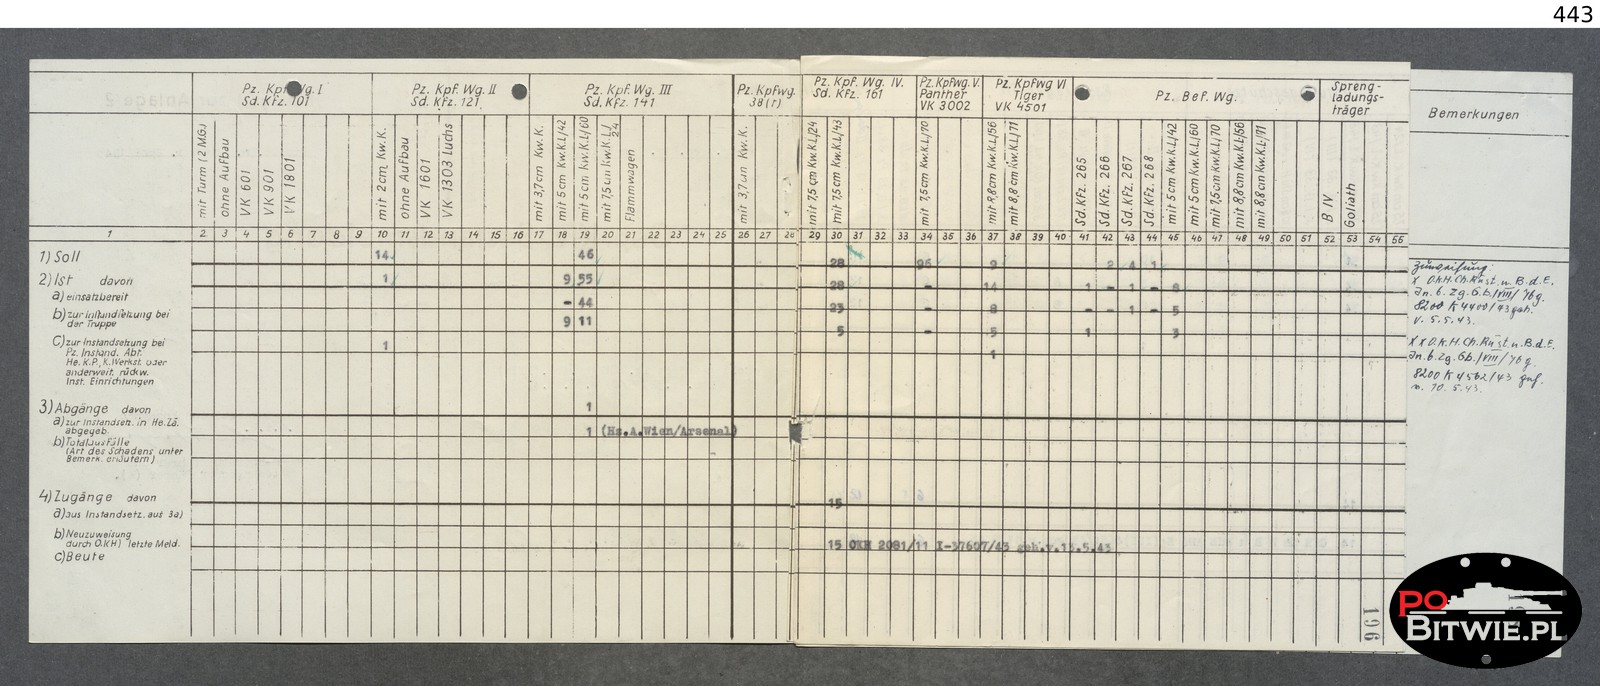 443
Pz. Kpf. Wg. I
Sd. Kfz. 101
Pz. Kpf. Wg. II
Sd. Kfz. 121
Pz. Kpf. Wg. III
Sd. Kfz. 141
Pz. Kpfwg.
38(t)
Pz. Kpf. Wg. IV.
Sd. Kfz. 161
Pz. Kpfwg. V.
Panther
VK 3002
Pz. Kpfwg VI
Tiger
VK 4501
Pz. Bef. Wg.
Spreng-
ladungs-
träger
Bemerkungen
mit Turm (2 M.G.)
ohne Aufbau
VK 601
VK 901
VK 1801
mit 2 cm Kw. K.
ohne Aufbau
VK 1601
VK 1303 Luchs
mit 3,7cm Kw. K.
mit 5 cm Kw.K.L/42
mit 5 cm Kw.K.L/60
mit 7,5 cm Kw.K.L/24
Flammwagen
mit 3,7cm Kw. K.
mit 7,5 cm Kw.K.L/24
mit 7,5 cm Kw.K.L/43
mit 7,5cm Kw.K.L/70
mit 8,8cm Kw.K.L/56
mit 8,8 cm Kw.K.L/71
Sd. Kfz. 265
Sd. Kfz. 266
Sd. Kfz. 267
Sd. Kfz. 268
mit 5 cm Kw.K.L/42
mit 5 cm Kw.K.L/60
mit 7,5cm Kw.K.L/70
mit 8,8 cm Kw.K.L/56
mit 8,8cm Kw.K.L/71
B IV
Goliath
1 2 3 4 5 6 7 8 9 10 11 12 13 14 15 16 17 18 19 20 21 22 23 24 25 26 27 28 29 30 31 32 33 34 35 36 37 38 39 40 41 42 43 44 45 46 47 48 49 50 51 52 53 54 55
1) Soll 14 46 28 96 9 2 4 1
2) Ist davon 1 9 55 28 - 14 1 - 1 - 8
a) einsatzbereit - 44 23 - 8 - - 1 - 5
b) zur Instandsetzung bei
der Truppe 9 11 5 - 5 1 3
c) zur Instandsetzung bei
Pz. Instand. Abt. 1 1
He. K.P., K.Werkst. oder
anderweit. rückw.
Inst. Einrichtungen
3) Abgänge davon 1
a) zur Instandsetz. in He. Zä.
abgegeb. 1 (Hs.A.Wien/Arsenal)
b) Totalausfälle
(Art des Schadens unter
Bemerk. erläutern)
4) Zugänge davon 15
a) aus Instandsetz. aus 3a)
b) Neuzuweisung
durch O.KH) letzte Meld. 15 OKH 2081/11 I-37607/43 geh.v.13.5.43
c) Beute
Zuweisung:
x O.K.H. Ch. Rüst. u. B.d.E.
8200 K 4400/43 geh.
v. 5.5.43.
x x O.K.H. Ch. Rüst. u. B.d.E.
8200 K 4562/43
v. 10.5.43.
196
PO
BITWIE.PL